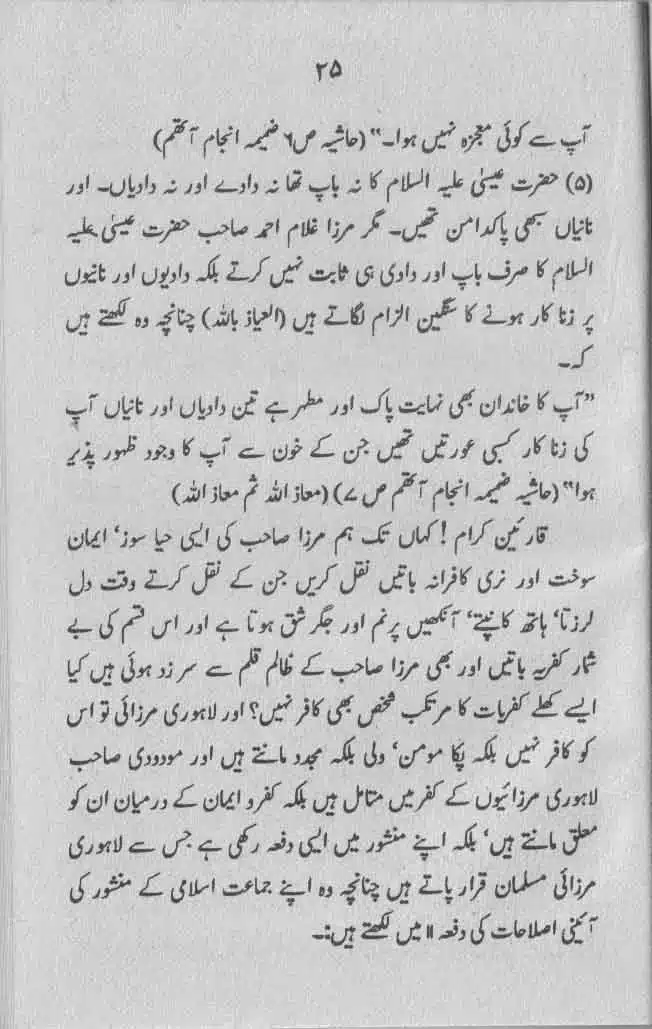 ۲۵
آپ سے کوئی معجزہ نہیں ہوا۔“ (حاشیہ ص۶ ضمیمہ انجام آتھم)
(۵) حضرت عیسیٰ علیہ السلام کا نہ باپ تھا نہ دادے اور نہ دادیاں۔ اور
نانیاں سبھی پاکدامن تھیں۔ مگر مرزا غلام احمد صاحب حضرت عیسیٰ علیہ
السلام کا صرف باپ اور دادی ہی ثابت نہیں کرتے بلکہ دادیوں اور نانیوں
پر زنا کار ہونے کا سنگین الزام لگاتے ہیں (العیاذ باللہ) چنانچہ وہ لکھتے ہیں
کہ۔
”آپ کا خاندان بھی نہایت پاک اور مطہر ہے تین دادیاں اور نانیاں آپ
کی زنا کار کسبی عورتیں تھیں جن کے خون سے آپ کا وجود ظہور پذیر
ہوا“ (حاشیہ ضمیمہ انجام آتھم ص ۷) (معاذ اللہ ثم معاذ اللہ)
قارئین کرام! کہاں تک ہم مرزا صاحب کی ایسی حیا سوز‘ ایمان
سوخت اور نری کافرانہ باتیں نقل کریں جن کے نقل کرتے وقت دل
لرزتا‘ ہاتھ کانپتے‘ آنکھیں پرنم اور جگر شق ہوتا ہے اور اس قسم کی بے
شمار کفریہ باتیں اور بھی مرزا صاحب کے ظالم قلم سے سرزد ہوئی ہیں کیا
ایسے کھلے کفریات کا مرتکب شخص بھی کافر نہیں؟ اور لاہوری مرزائی تو اس
کو کافر نہیں بلکہ پکا مومن‘ ولی بلکہ مجدد مانتے ہیں اور مودودی صاحب
لاہوری مرزائیوں کے کفر میں متامل ہیں بلکہ کفر و ایمان کے درمیان ان کو
معلق مانتے ہیں‘ بلکہ اپنے منشور میں ایسی دفعہ رکھی ہے جس سے لاہوری
مرزائی مسلمان قرار پاتے ہیں چنانچہ وہ اپنے جماعت اسلامی کے منشور کی
آئینی اصلاحات کی دفعہ ۱۱ میں لکھتے ہیں:۔